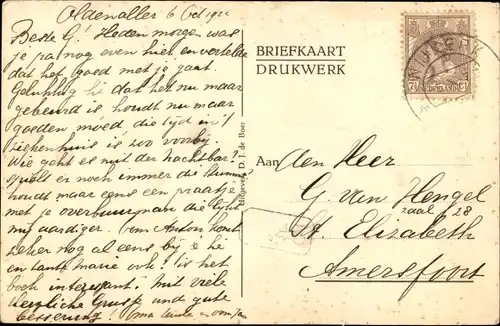 Oldenaller 6 Oct 192
Beste G! Heden morgen was
je pa nog even hier en vertelde
dat het goed met je gaat.
Gelukkig dat het nu maar
gebeurd is houdt nu maar
goeden moed, die tijd in 't
ziekenhuis is zoo voorbij
Wie geht es mit der nachtbar?
speelt er noch immer die
houdt maar eens een praatje
met je overbuurman die lijkt
mij aardiger. Oom Anton komt
zeker nog al eens bij je hé
en tante Marie ook! is het
boek interessant. Met viele
Herzliche Gruss und gute
besserung!
BRIEFKAART
DRUKWERK
Uitgever: D. J. de Boer
NIJKERK
NEDERLAND
Aan den Heer
G. van Hengel
zaal 28
St. Elizabeth
Amersfoort